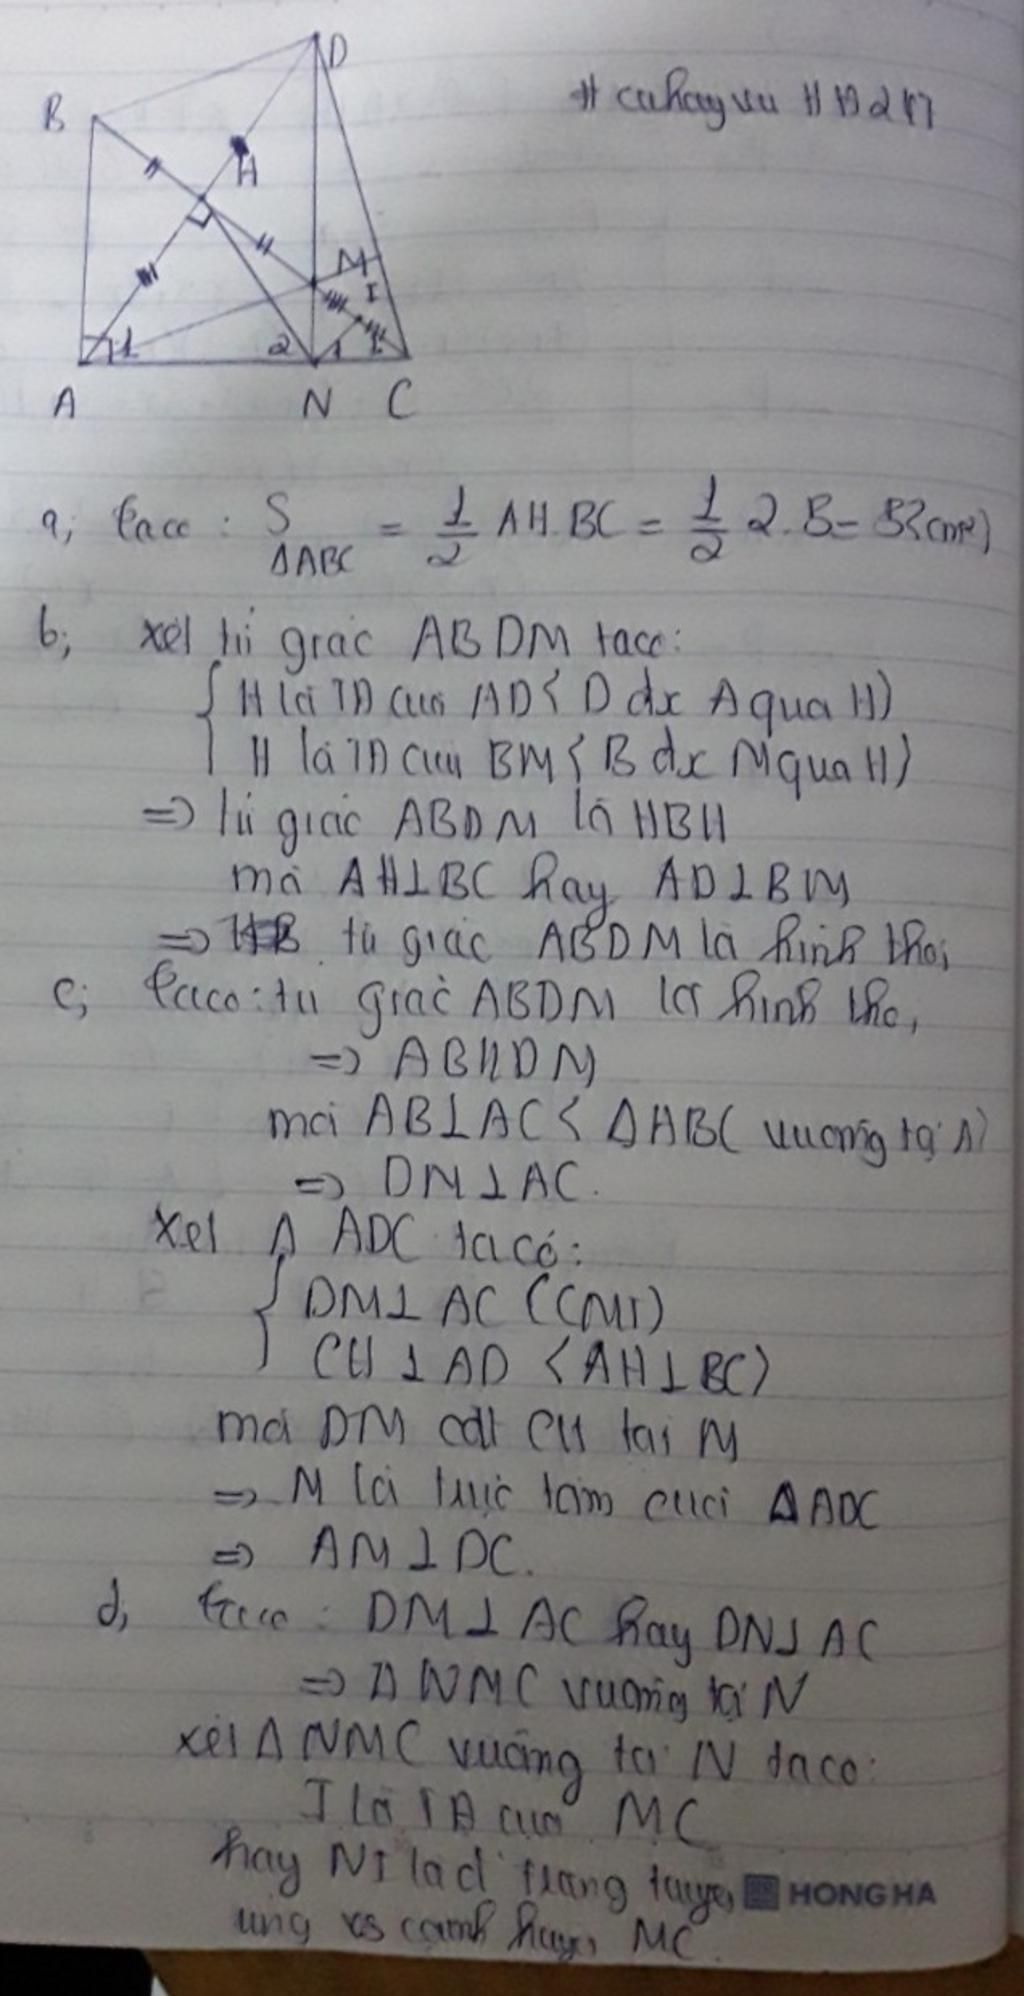 B
D
H
M
I
1
2
1
A
N
C
a, taco: S ΔABC = 1/2 AH.BC = 1/2 2.5 =
b, xét tứ giác ABDM taco:
H là TĐ của AD ( D đx A qua H)
H là TĐ của BM ( B đx M qua H)
=> tứ giác ABDM là HBH
mà AH⊥BC hay AD⊥BM
=> tứ giác ABDM là hình thoi
c, taco: tứ giác ABDM là hình thoi
=> AB//DM
mà AB⊥AC ( ΔABC vuông tại A)
=> DM⊥AC.
Xét Δ ADC ta có:
DM⊥AC (CMT)
CH⊥AD (AH⊥BC)
mà DM cắt CH tại M
=> M là trực tâm của ΔADC
=> AM⊥DC.
d, taco: DM⊥AC hay DN⊥AC
=> Δ NMC vuông tại N
xét ΔNMC vuông tại N taco:
I là TĐ của MC
hay NI là đ' trung tuyến
HONG HA
ứng vs cạnh huyền MC.